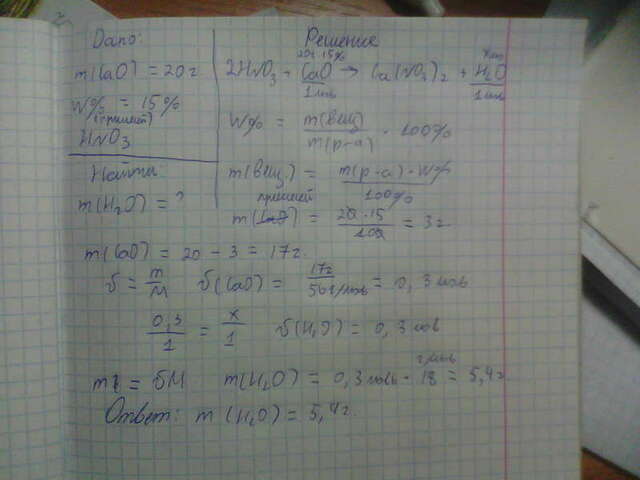 Дано:
m(CaO) = 20 г
W% = 15%
(примесей)
HNO3
Найти
m(H2O) = ?
Решение
20г 15% x моль
2HNO3 + CaO → Ca(NO3)2 + H2O
1 моль 1 моль
W% = m(вещ) / m(р-а) · 100%
m(вещ.) = m(р-а) · W% / 100%
примесей
m = 20 · 15 / 100 = 3 г
m(CaO) = 20 - 3 = 17 г.
υ = m/M υ(CaO) = 17г / 56 г/моль = 0,3 моль
0,3 / 1 = x / 1 υ(H2O) = 0,3 моль
m = υM m(H2O) = 0,3 моль · 18 г/моль = 5,4 г.
Ответ: m (H2O) = 5,4 г.